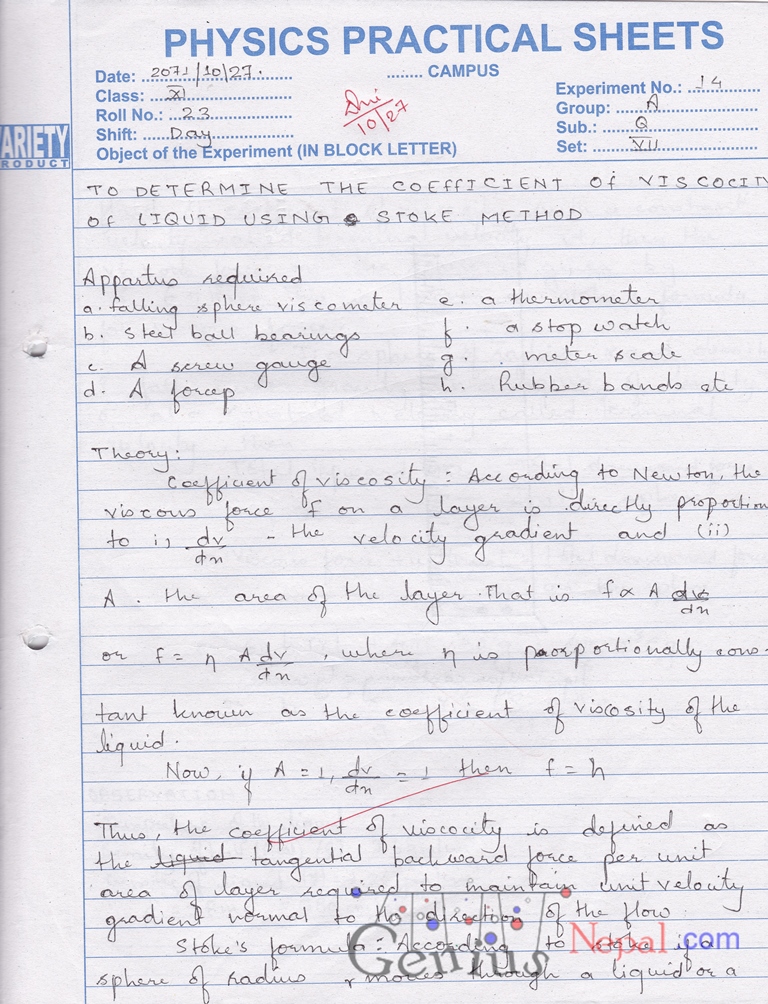 PHYSICS PRACTICAL SHEETS
Date: 2071/10/27.
........ CAMPUS
Class: XI
Experiment No.: 14
Roll No.: 23
Group: A
Shift: Day
Sub.: Q
10/27
Set: VII
VARIETY
PRODUCT
Object of the Experiment (IN BLOCK LETTER)
TO DETERMINE THE COEFFICIENT Of VISCOCIT
Of LIQUID USING STOKE METHOD
Appartus required
a. falling sphere viscometer e. a thermometer
b. steel ball bearings f. a stop watch
c. A screw gauge g. meter scale
d. A forcep h. Rubber bands etc
Theory:
Coefficient of viscosity : According to Newton, the
viscous force f on a layer is directly proportion
to i, dv/dx - the velocity gradient and (ii)
A . the area of the layer. That is f ∝ A dv/dx
or f = η A dv/dx , where η is porportionally cons-
tant known as the coefficient of viscosity of the
liquid.
Now, if A = 1, dv/dx = 1 then f = η
Thus, the coefficient of viscocity is defined as
the liquid tangential backward force per unit
area of layer required to maintain unit velocity
gradient normal to the direction of the flow.
Stoke's formula : According to stoke if a
sphere of radius r moves through a liquid or a
Genius Nepal.com